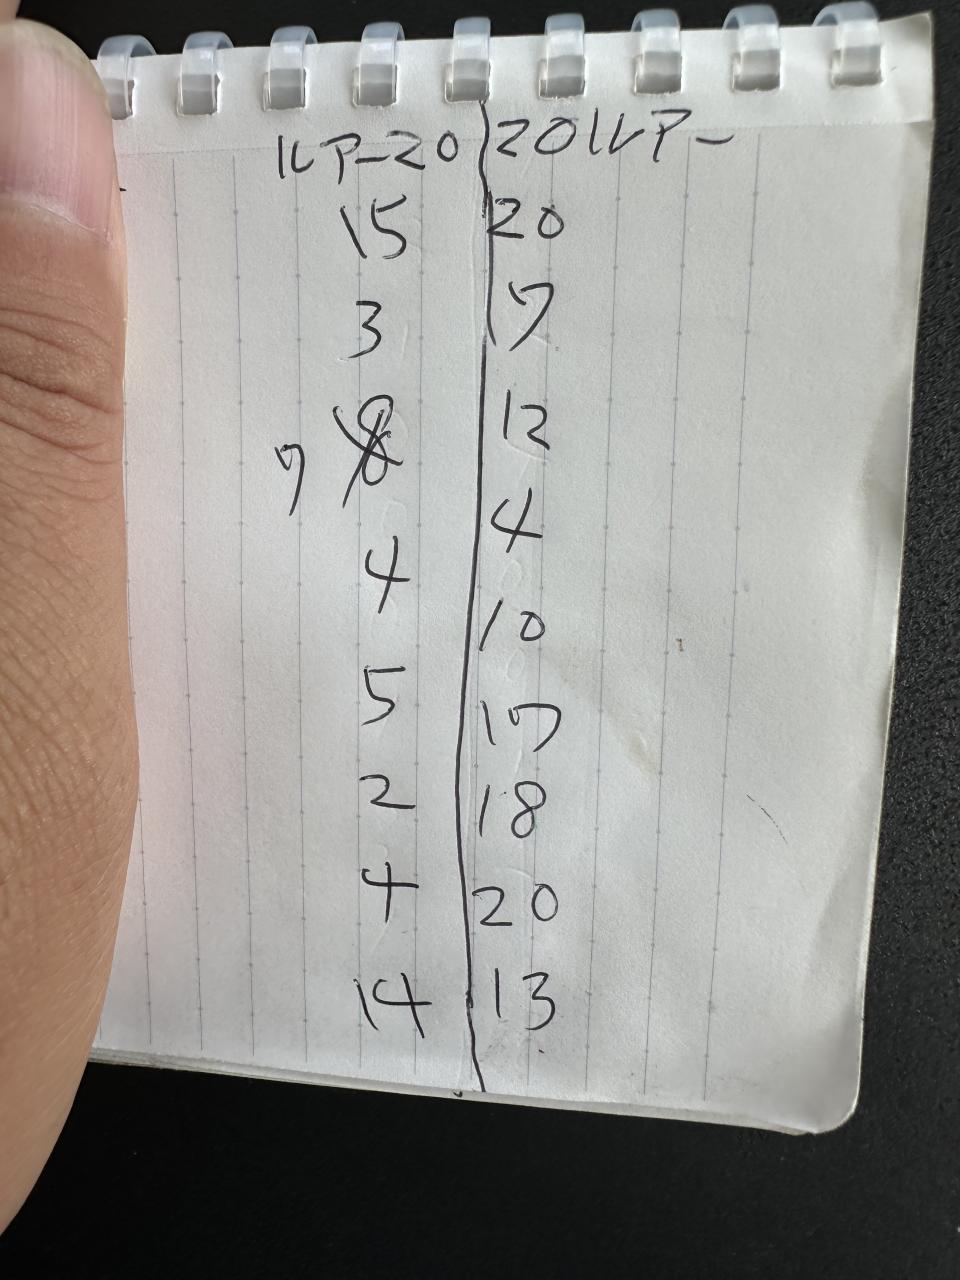 ルアー20 20ルアー
15 20
3 17
7 8 12
4 4
5 10
2 17
4 18
14 20
13